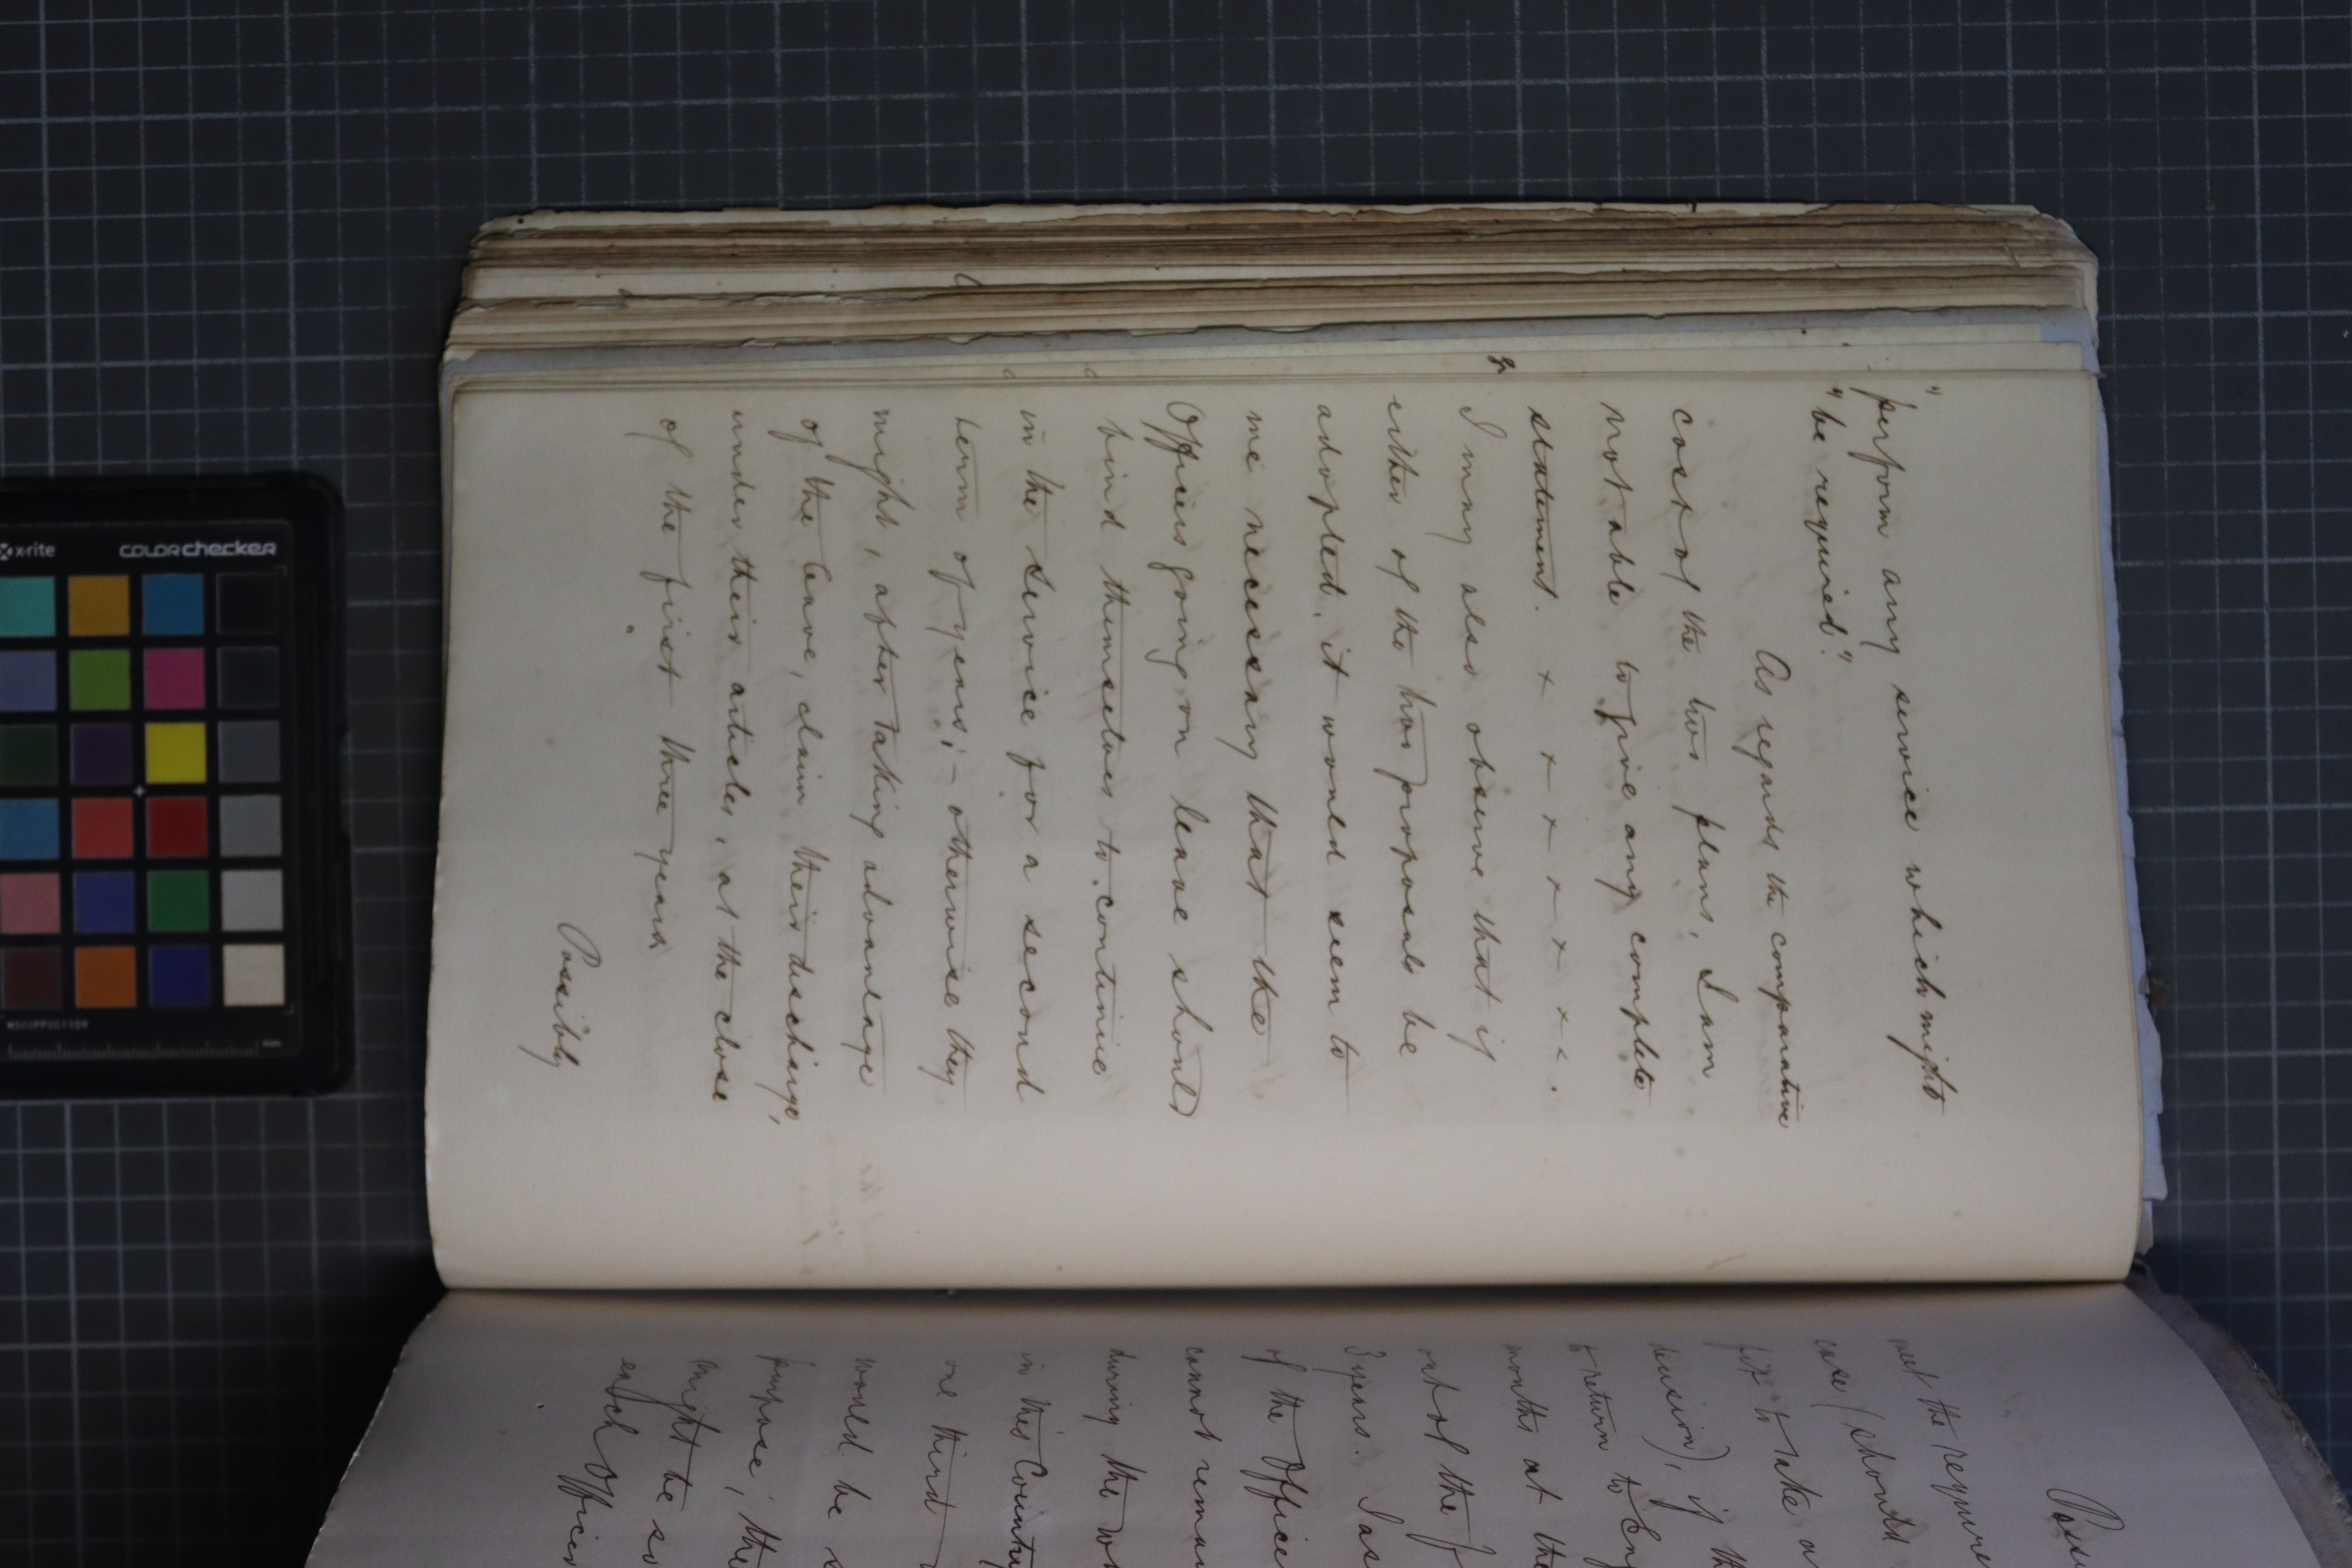 "perform any service which might
"be required."
As regards the comparative
cost of the two plans, I am
not able to give any complete
statement. x x x x x x x .
I may also observe that if
either of the two proposals be
adopted, it would seem to
me necessary that the
Officers going on leave should
bind themselves to continue
in the service for a second
term of years; - otherwise they
might, after taking advantage
of the leave, claim their discharge,
under their articles, at the close
of the first three years.
Possibly
meet the require
case (should
fit to take a
decision), if th
to return to Eng
months at the
out of the
3 years. I as
of the Office
cannot remai
during the wo
in this Country
one third
would be s
purpose; the
might be so
each Officer
x-rite
colorchecker
mm